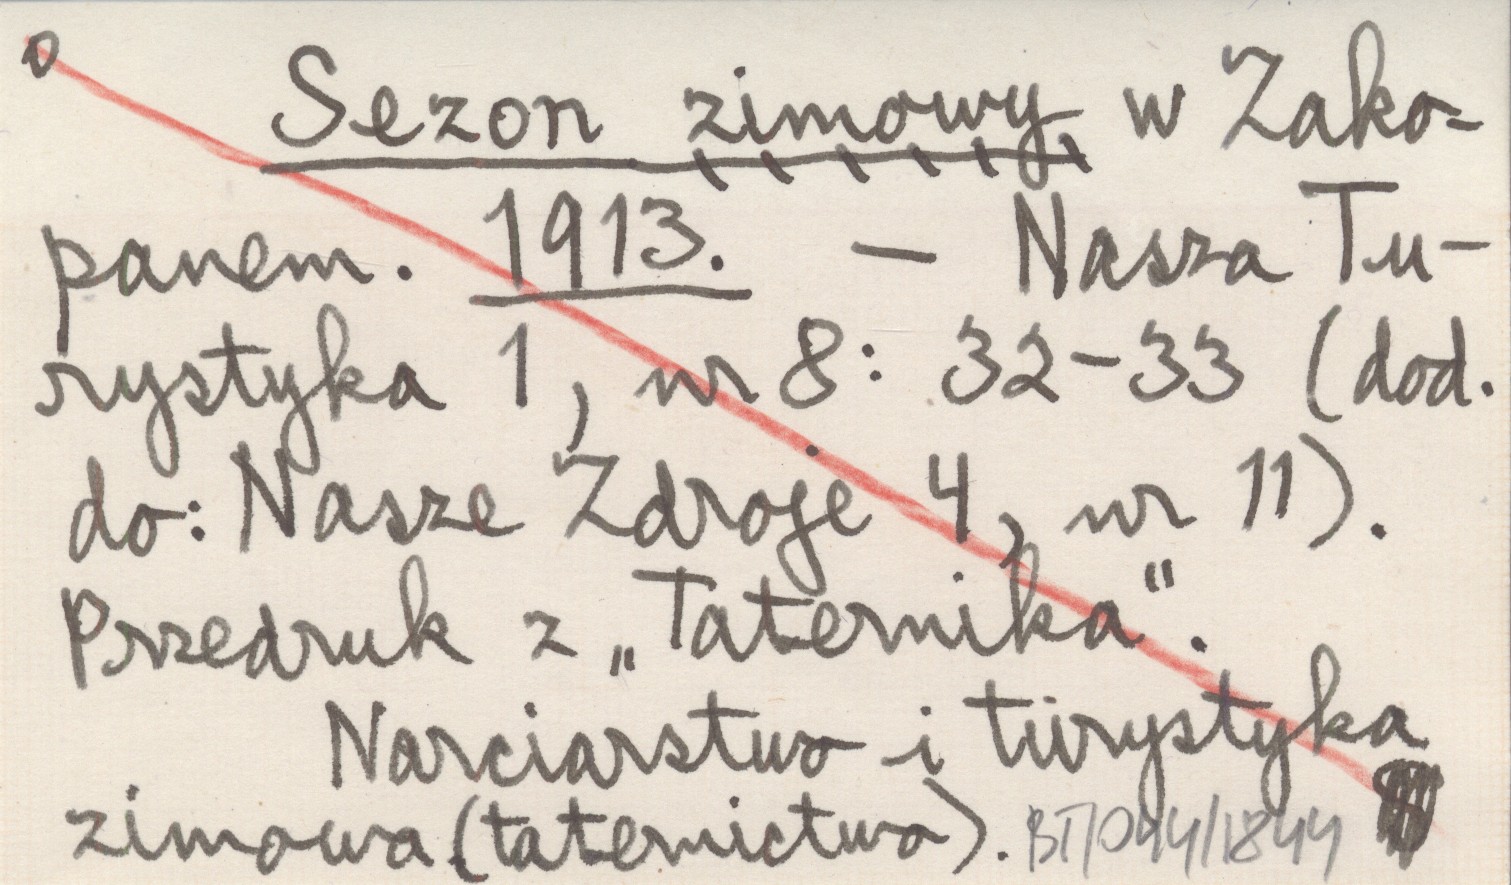 0
Sezon zimowy w Zako-
panem. 1913. — Nasza Tu-
rystyka 1, nr 8: 32-33 (dod.
do: Nasze Zdroje 4, nr 11).
Przedruk z „Taternika".
Narciarstwo i turystyka
zimowa (taternictwo). BT/044/1844